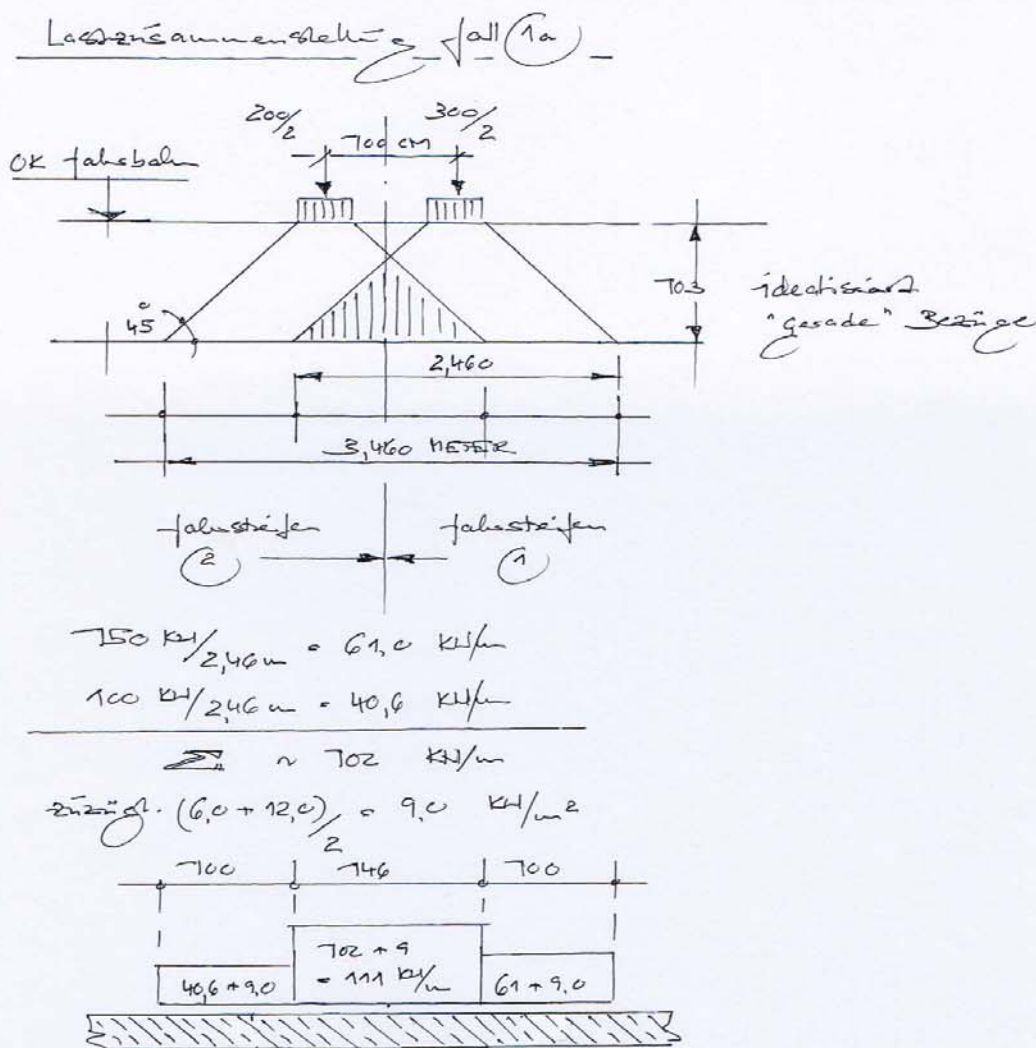 Lastzusammenstellung Fall 1a
200/2 300/2
100 cm
OK Fahrbahn
103 idealisiert
45° "gerade" Bezüge
2,460
3,460 METER
Fahrstreifen Fahrstreifen
2 1
150 KN/2,46m = 61,0 KN/m
100 KN/2,46m = 40,6 KN/m
Σ ~ 102 KN/m
zuzügl. (6,0 + 12,0)/2 = 9,0 KN/m²
100 146 100
102 + 9
40,6 + 9,0 = 111 KN/m 61 + 9,0